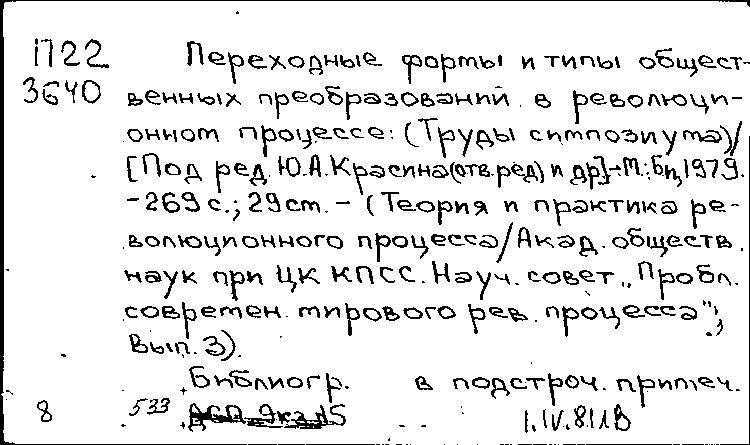 П22 Переходные формы и типы общест-
3640 венных преобразований в революци-
онном процессе: (Труды симпозиума)/
[Под ред. Ю.А.Красина(отв.ред) и др]-М.:Б.и,1979.
-269 с.; 29см. - (Теория и практика ре-
волюционного процесса/Акад. обществ.
наук при ЦК КПСС. Науч. совет „Пробл.
современ. мирового рев. процесса";
Вып. 3).
Библиогр. в подстроч. примеч.
8 533